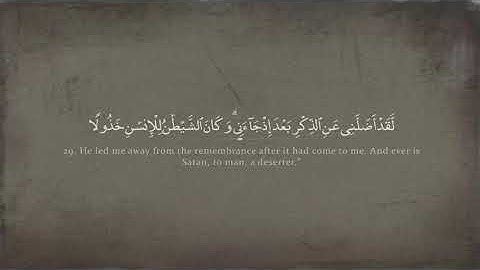 لَّقَدْ أَضَلَّنِى عَنِ ٱلذِّكْرِ بَعْدَ إِذْ جَآءَنِى ۗ وَكَانَ ٱلشَّيْطَٰنُ لِلْإِنسَٰنِ خَذُولًا
29. He led me away from the remembrance after it had come to me. And ever is
Satan, to man, a deserter."